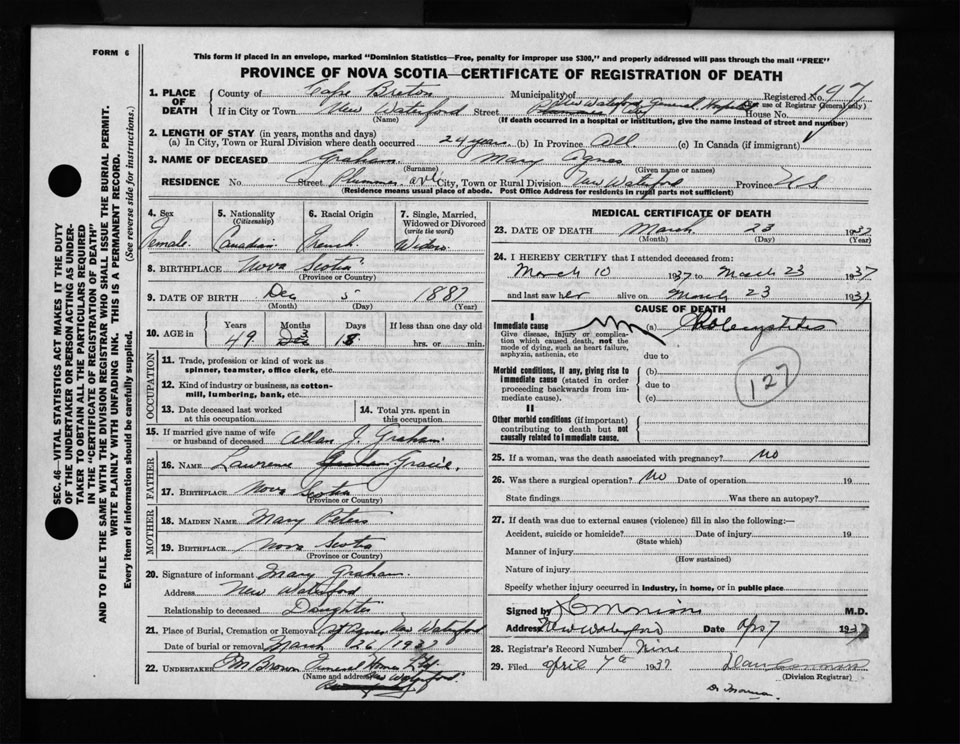 FORM 6
This form if placed in an envelope, marked "Dominion Statistics—Free, penalty for improper use $300," and properly addressed will pass through the mail "FREE"
PROVINCE OF NOVA SCOTIA—CERTIFICATE OF REGISTRATION OF DEATH
SEC. 46—VITAL STATISTICS ACT MAKES IT THE DUTY
OF THE UNDERTAKER OR PERSON ACTING AS UNDER-
TAKER TO OBTAIN ALL THE PARTICULARS REQUIRED
IN THE "CERTIFICATE OF REGISTRATION OF DEATH"
AND TO FILE THE SAME WITH THE DIVISION REGISTRAR WHO SHALL ISSUE THE BURIAL PERMIT.
WRITE PLAINLY WITH UNFADING INK. THIS IS A PERMANENT RECORD.
Every item of information should be carefully supplied. (See reverse side for instructions.)
1. PLACE OF DEATH County of Cape Breton Municipality of Registered No. 97
(For use of Registrar General only)
If in City or Town New Waterford Street New Waterford General Hospital House No.
(Name) (If death occurred in a hospital or institution, give the name instead of street and number)
2. LENGTH OF STAY (in years, months and days)
(a) In City, Town or Rural Division where death occurred 24 years (b) In Province All. (c) In Canada (if immigrant)
3. NAME OF DECEASED Graham Mary Agnes
(Surname) (Given name or names)
RESIDENCE No Street Plummer ave City, Town or Rural Division New Waterford Province N S
(Residence means usual place of abode. Post Office Address for residents in rural parts not sufficient)
4. Sex Female
5. Nationality (Citizenship) Canadian
6. Racial Origin French
7. Single, Married, Widowed or Divorced (write the word) Widow
8. BIRTHPLACE Nova Scotia
(Province or Country)
9. DATE OF BIRTH Dec 5 1887
(Month) (Day) (Year)
10. AGE in Years Months Days If less than one day old
49 3 18 hrs. or min.
OCCUPATION
11. Trade, profession or kind of work as spinner, teamster, office clerk, etc
12. Kind of industry or business, as cotton-mill, lumbering, bank, etc.
13. Date deceased last worked at this occupation
14. Total yrs. spent in this occupation
15. If married give name of wife or husband of deceased Allan J. Graham
FATHER
16. NAME Lawrence Graham Gracie
17. BIRTHPLACE Nova Scotia
(Province or Country)
MOTHER
18. MAIDEN NAME Mary Peters
19. BIRTHPLACE Nova Scotia
(Province or Country)
20. Signature of informant Mary Graham
Address New Waterford
Relationship to deceased Daughter
21. Place of Burial, Cremation or Removal St Agnes New Waterford
Date of burial or removal March 26/1937
22. UNDERTAKER Brown Funeral Home
(Name and address) New Waterford
MEDICAL CERTIFICATE OF DEATH
23. DATE OF DEATH March 23 1937
(Month) (Day) (Year)
24. I HEREBY CERTIFY that I attended deceased from:
March 10 1937 to March 23 1937
and last saw her alive on March 23 1937
CAUSE OF DEATH
I
Immediate cause (a) Cholecystitis
Give disease, injury or complication which caused death, not the mode of dying, such as heart failure, asphyxia, asthenia, etc
due to
Morbid conditions, if any, giving rise to immediate cause (stated in order proceeding backwards from immediate cause).
(b)
due to
(c)
127
II
Other morbid conditions (if important) contributing to death but not causally related to immediate cause.
25. If a woman, was the death associated with pregnancy? No
26. Was there a surgical operation? No Date of operation 19
State findings Was there an autopsy?
27. If death was due to external causes (violence) fill in also the following:—
Accident, suicide or homicide? Date of injury 19
(State which)
Manner of injury
(How sustained)
Nature of injury
Specify whether injury occurred in industry, in home, or in public place
Signed by M.D.
Address New Waterford Date Apr 7 1937
28. Registrar's Record Number Nine
29. Filed April 7th 1937
(Division Registrar)